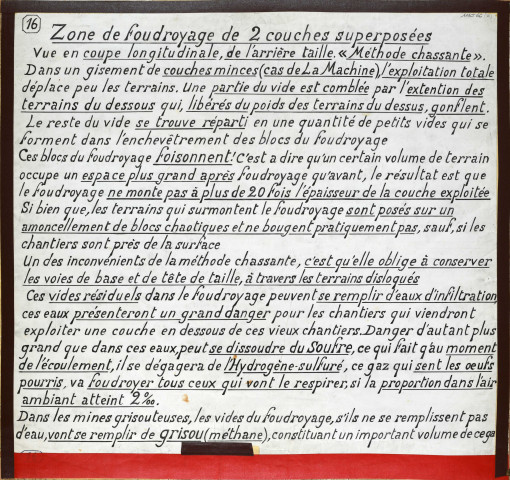 16
Zone de foudroyage de 2 couches superposées
Vue en coupe longitudinale, de l'arrière taille. «Méthode chassante».
Dans un gisement de couches minces (cas de La Machine) l'exploitation totale
déplace peu les terrains. Une partie du vide est comblée par l'extention des
terrains du dessous qui, libérés du poids des terrains du dessus, gonflent.
Le reste du vide se trouve réparti en une quantité de petits vides qui se
forment dans l'enchevêtrement des blocs du foudroyage
Ces blocs du foudroyage foisonnent! C'est a dire qu'un certain volume de terrain
occupe un espace plus grand après foudroyage qu'avant, le résultat est que
le foudroyage ne monte pas à plus de 20 fois l'épaisseur de la couche exploitée
Si bien que, les terrains qui surmontent le foudroyage sont posés sur un
amoncellement de blocs chaotiques et ne bougent pratiquement pas, sauf, si les
chantiers sont près de la surface
Un des inconvénients de la méthode chassante, c'est qu'elle oblige à conserver
les voies de base et de tête de taille, à travers les terrains disloqués
Ces vides résiduels dans le foudroyage peuvent se remplir d'eaux d'infiltration
ces eaux présenteront un grand danger pour les chantiers qui viendront
exploiter une couche en dessous de ces vieux chantiers. Danger d'autant plus
grand que dans ces eaux, peut se dissoudre du Soufre, ce qui fait qu'au moment
de l'écoulement, il se dégagera de l'Hydrogène-sulfuré, ce gaz qui sent les œufs
pourris, va foudroyer tous ceux qui vont le respirer, si la proportion dans l'air
ambiant atteint 2‰.
Dans les mines grisouteuses, les vides du foudroyage, s'ils ne se remplissent pas
d'eau, vont se remplir de grisou (méthane), constituant un important volume de ce ga